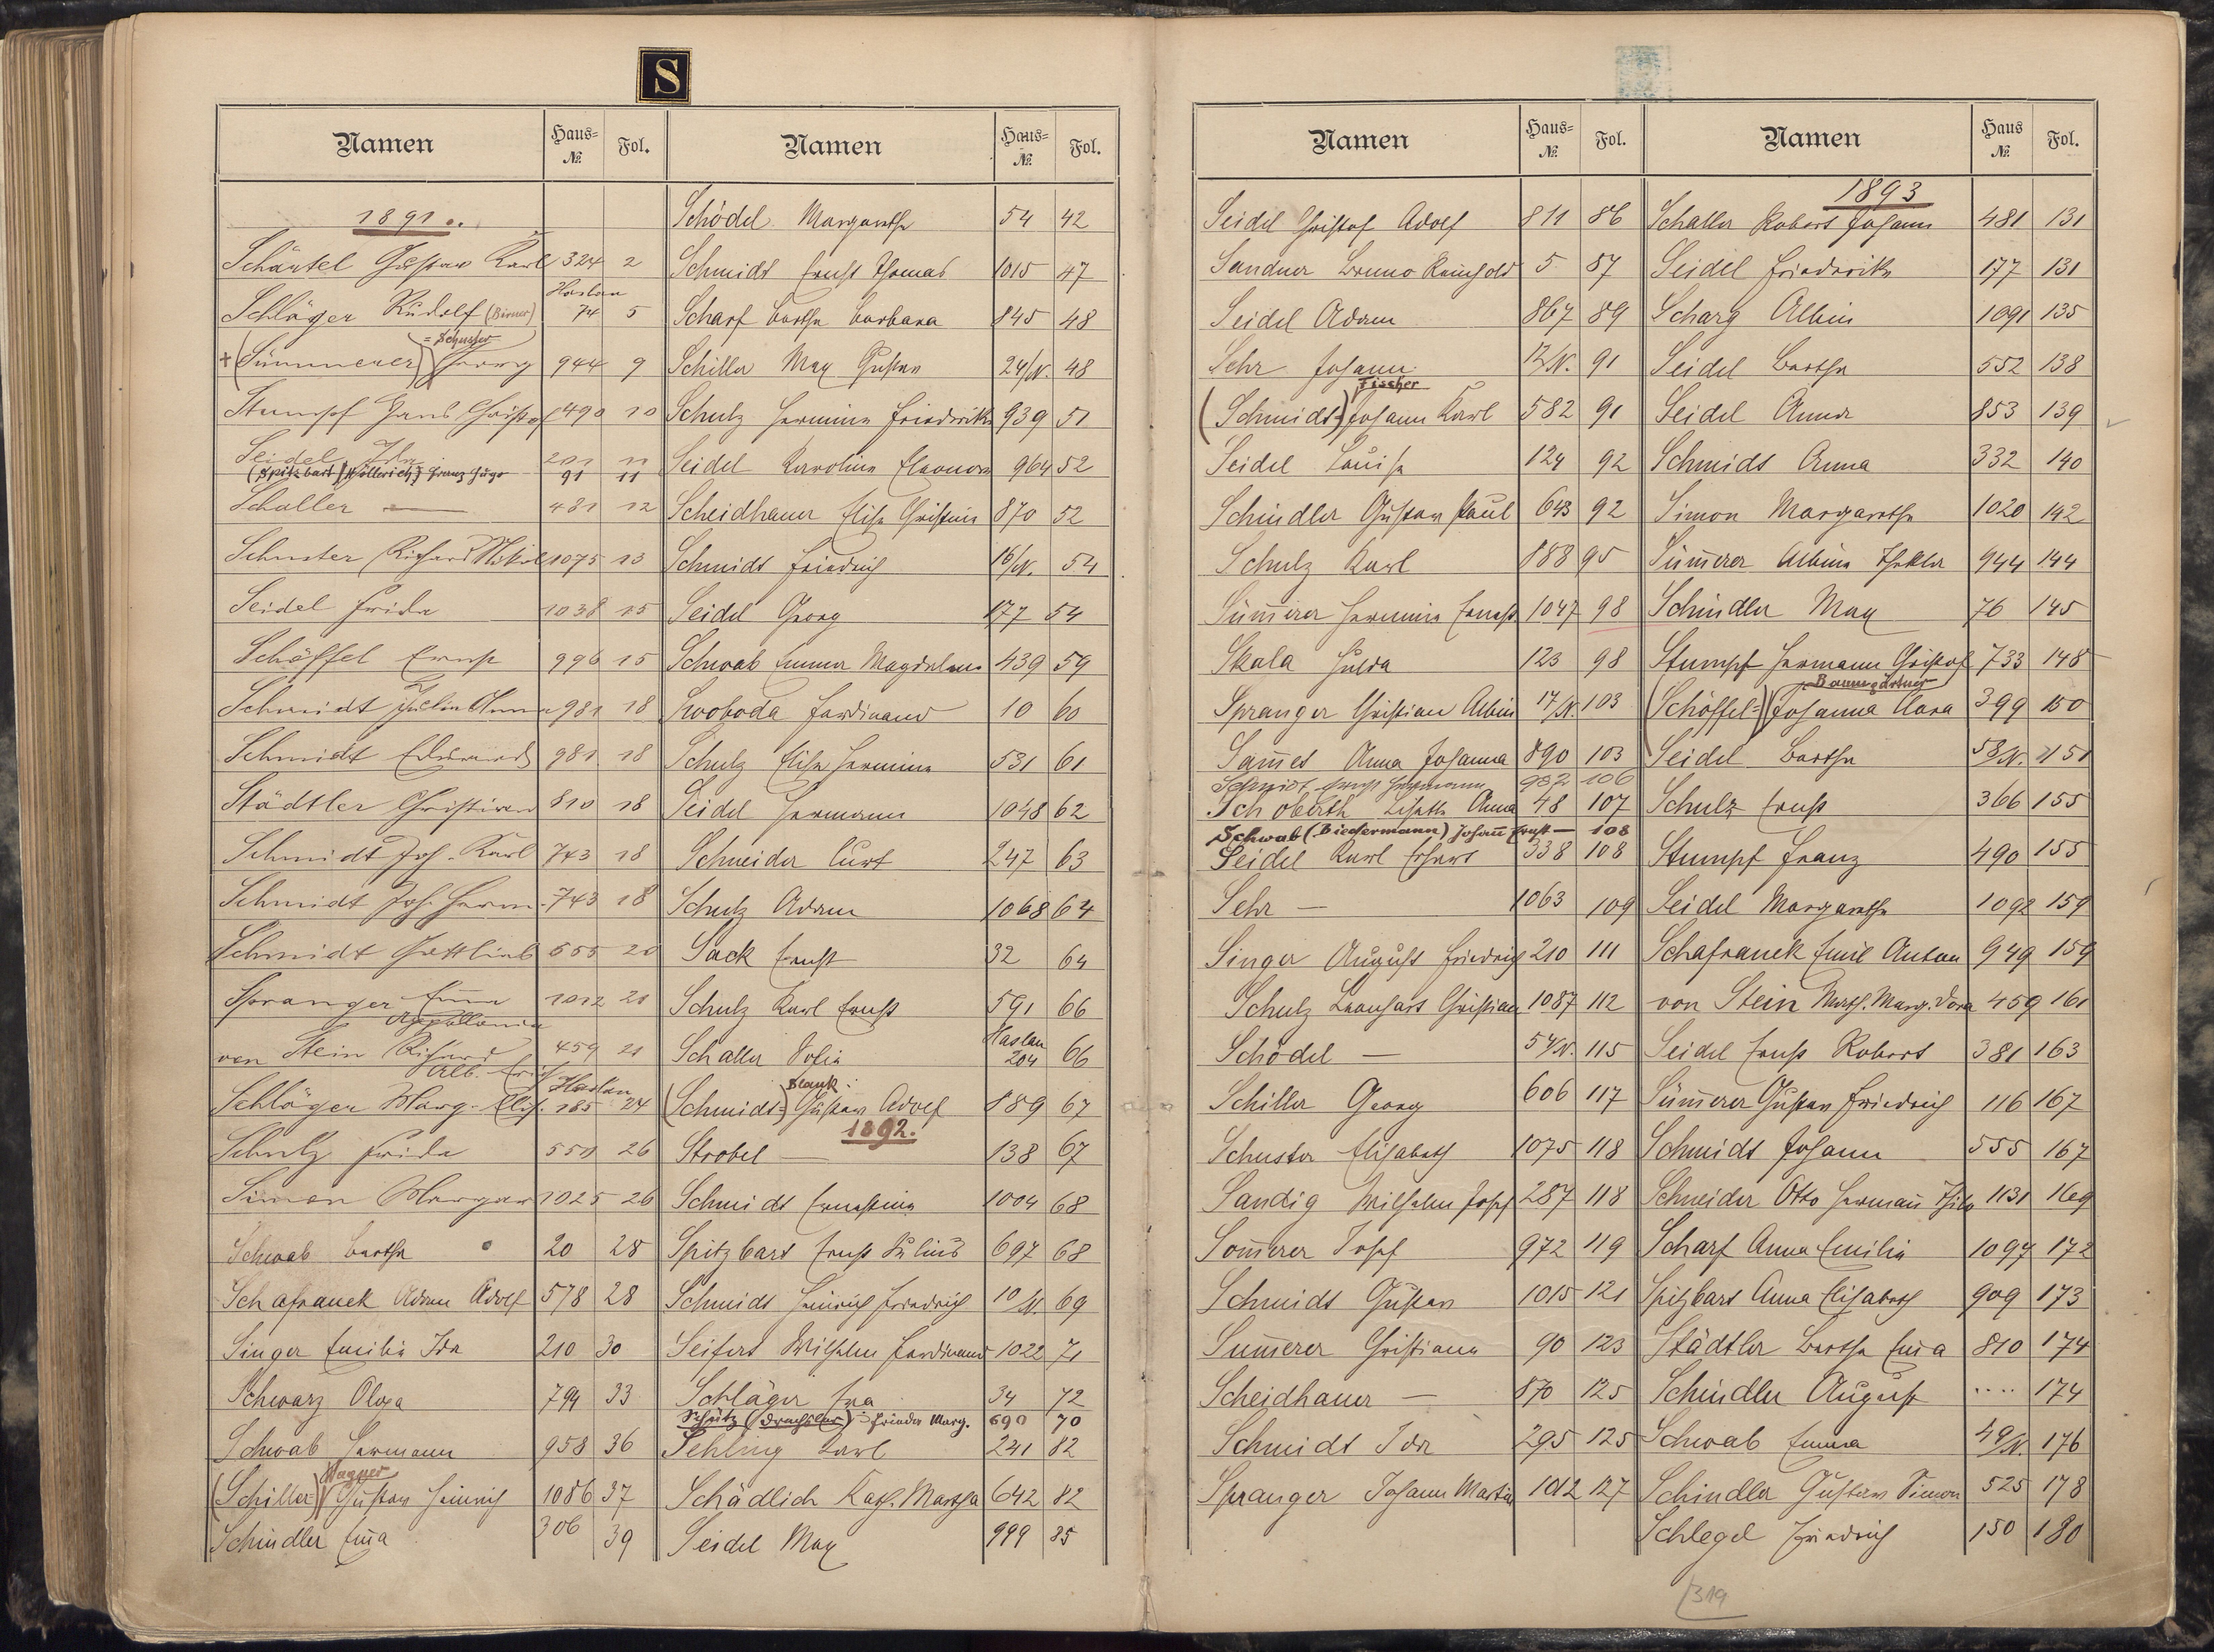 S
Namen Haus= № Fol.
1891.
Schäntel Gustav Karl 324 2
Haslau
Schläger Rudolf (Birner) 74 5
= Schuster
+ (Sümmerer) Georg 944 9
Stumpf Hans Christof 490 10
Seidel Ida 211 11
(Spitzbart) (Höllerich) Franz Hugo 91 11
Schaller — 481 12
Schuster Richard Nikol 1075 13
Seidel Frida 1038 15
Schöffel Ernst 996 15
Schmidt Julia Anna 981 18
Schmidt Eduard 981 18
Städtler Christian 810 18
Schmidt Joh. Karl 743 18
Schmidt Joh. Herm. 743 18
Schmidt Gottlieb 555 20
Spranger Ema 1012 21
Appollonia
von Stein Richard 459 21
Alb.
Haslau
Schläger Marg. Elis. 185 24
Schulz Frida 551 26
Simon Margar 1025 26
Schwab Bertha 20 28
Schafranek Adam Adolf 578 28
Singer Emilie Ida 210 30
Schwarz Olga 794 33
Schwab Hermann 958 36
Wagner
(Schiller=) Gustav Heinrich 1086 37
Schindler Ema 306 39
Namen Haus= № Fol.
Schödel Margaretha 54 42
Schmidt Ernst Thomas 1015 47
Scharf Bertha Barbara 845 48
Schiller Max Gustav 24/N. 48
Schulz Hermine Friedrike 939 51
Seidel Karoline Eleonora 964 52
Scheidhauer Elise Christine 870 52
Schmidt Friedrich 16/N. 54
Seidel Georg 177 54
Schwab Emma Magdalena 439 59
Swoboda Ferdinand 10 60
Schulz Elise Hermine 531 61
Seidel Hermann 1048 62
Schneider Curt 247 63
Schulz Adam 1068 64
Sack Ernst 32 64
Schulz Karl Ernst 591 66
Haslau
Schaller Sofie 204 66
Blank.
(Schmidt=) Gustav Adolf 889 67
1892.
Strobel — 138 67
Schmidt Ernestine 1004 68
Spitzbart Ernst Julius 697 68
Schmidt Heinrich Friedrich 10/N. 69
Seifert Wilhelm Ferdinand 1022 71
Schläger Eva 34 72
Schütz (Drechsler) Frieda Marg. 690 70
Sehling Karl 241 82
Schädlich Kath. Martha 642 82
Seidel Max 999 85
Namen Haus= № Fol.
Seidel Christof Adolf 811 86
Sandner Bruno Reinhold 5 87
Seidel Adam 867 89
Sehr Johann 12/N. 91
Fischer
(Schmidt=) Johann Karl 582 91
Seidel Louise 124 92
Schindler Gustav Paul 643 92
Schulz Karl 188 95
Sümerer Hermine Ernest 1047 98
Skala Hulda 123 98
Spranger Christian Albin 17/N. 103
Sames Anna Johanna 890 103
Schmidt Ernst Hermann 982 106
Schoberth Lisette Anna 48 107
Schwab (Biedermann) Johann Ernst — 108
Seidel Karl Erhart 338 108
Sehr — 1063 109
Singer August Friedrich 210 111
Schulz Leonhart Christian 1087 112
Schödel — 54/N. 115
Schiller Georg 606 117
Schuster Elisabeth 1075 118
Sandig Wilhelm Josef 287 118
Somerer Josef 972 119
Schmidt Gustav 1015 121
Sumerer Christiane 90 123
Scheidhauer — 870 125
Schmidt Ida 295 125
Spranger Johann Martin 1012 127
Namen Haus № Fol.
1893
Schaller Robert Johann 481 131
Seidel Friedrike 177 131
Scharg Albin 1091 135
Seidel Bertha 552 138
Seidel Anna 853 139
Schmidt Anna 332 140
Simon Margaretha 1020 142
Sümerer Albine Thekla 944 144
Schindler Max 76 145
Stumpf Hermann Christof 733 148
Baumgärtner
(Schöffel=) Johanna Clara 399 150
Seidel Bertha 58/N. 151
Schulz Ernst 366 155
Stumpf Franz 490 155
Seidel Margaretha 1092 159
Schafranek Emil Anton 949 159
von Stein Math. Marg. Dora 459 161
Seidel Ernst Robert 381 163
Sümerer Gustav Friedrich 116 167
Schmidt Johann 555 167
Schneider Otto Hermann Thilo 1131 169
Scharf Anna Emilie 1097 172
Spitzbart Anna Elisabeth 909 173
Städtler Bertha Ema 810 174
Schindler August .... 174
Schwab Emma 49/N. 176
Schindler Gustav Simon 525 178
Schlegel Friedrich 150 180
319